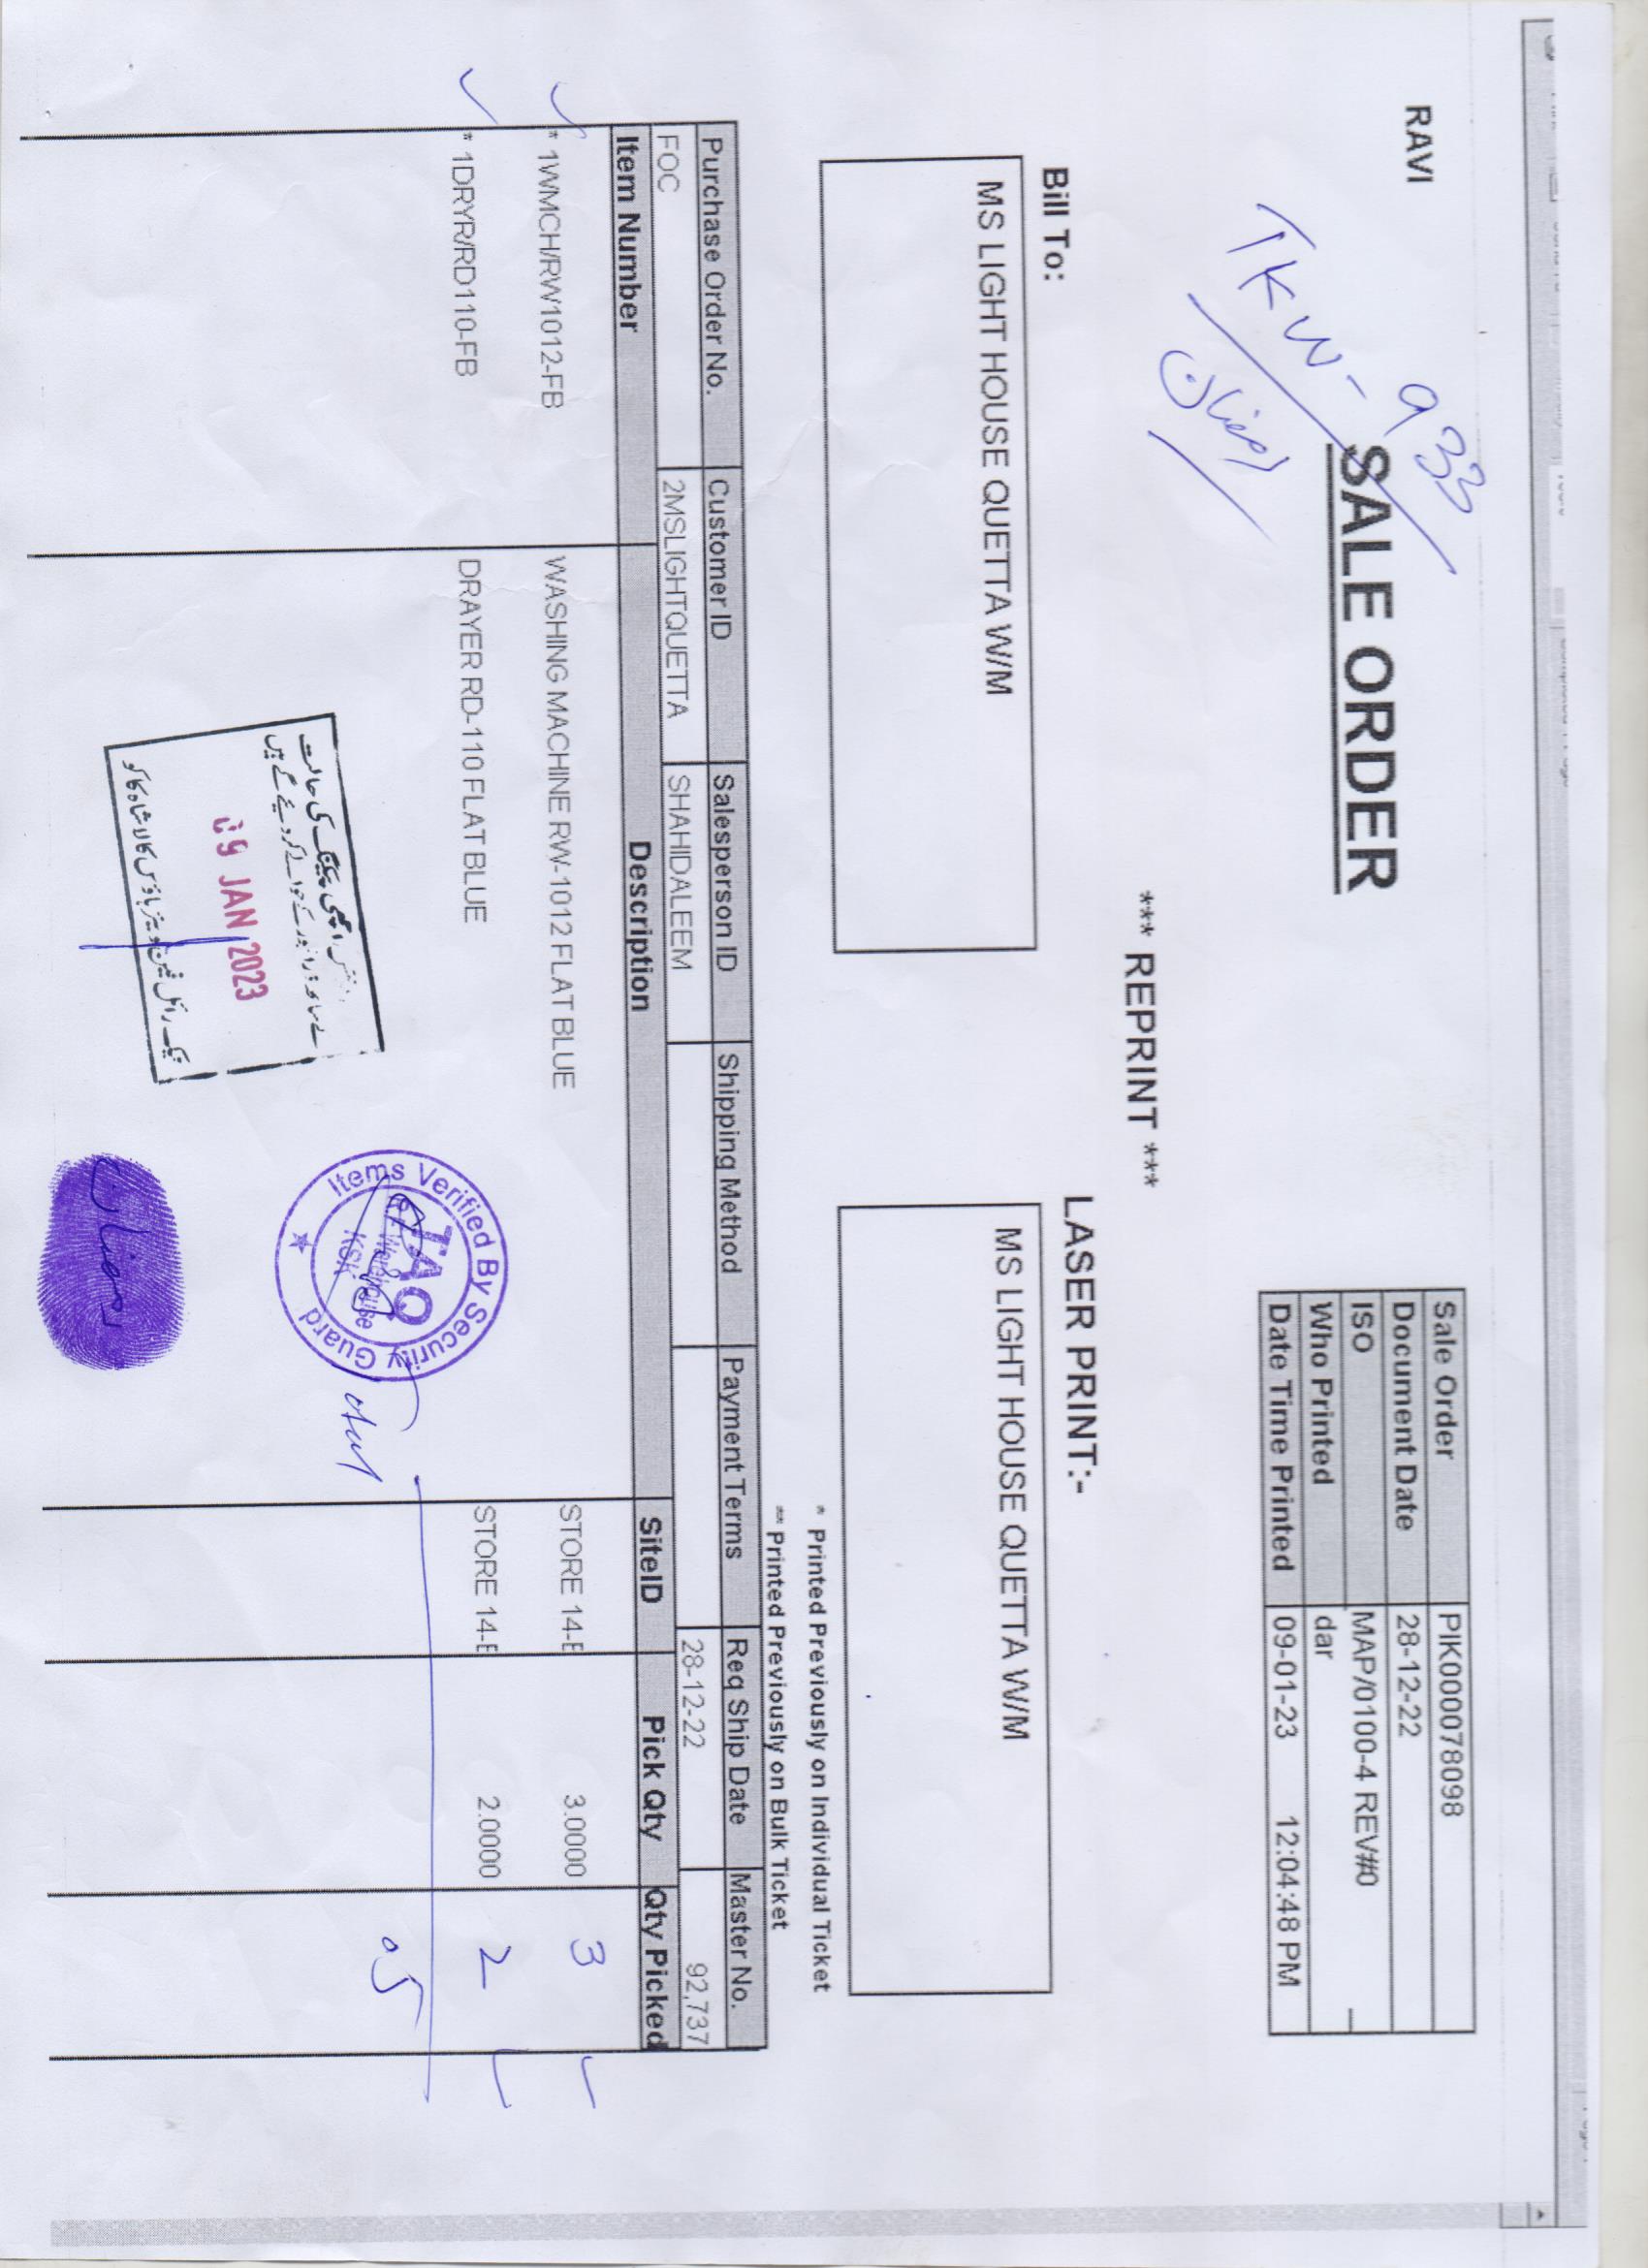 RAVI
TKW-933
رمضان
SALE ORDER
Sale Order PIK000078098
Document Date 28-12-22
ISO MAP/0100-4 REV#0
Who Printed dar
Date Time Printed 09-01-23 12:04:48 PM
*** REPRINT ***
Bill To:
MS LIGHT HOUSE QUETTA W/M
LASER PRINT:-
MS LIGHT HOUSE QUETTA W/M
* Printed Previously on Individual Ticket
** Printed Previously on Bulk Ticket
Purchase Order No. Customer ID Salesperson ID Shipping Method Payment Terms Req Ship Date Master No.
FOC 2MSLIGHTQUETTA SHAHIDALEEM 28-12-22 92,737
Item Number Description SiteID Pick Qty Qty Picked
* 1WMCH/RW1012-FB WASHING MACHINE RW-1012 FLAT BLUE STORE 14-E 3.0000 3
* 1DRYR/RD110-FB DRAYER RD-110 FLAT BLUE STORE 14-E 2.0000 2
Total 05
Items Verified By Security Guard
TAQ
R.F Warehouse
KSK
اچھی پیکنگ کی حالت
کے ساتھ ڈرائیور کے حوالے کر دیئے گے ہیں
09 JAN 2023
رائل فین ویئر ہاؤس کالا شاہ کاکو
رمضان